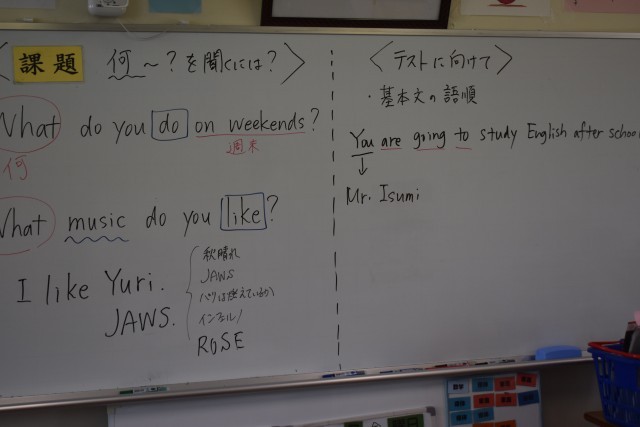 〈 課題 何~?を聞くには? 〉
What do you do on weekends?
何
週末
What music do you like?
I like Yuri.
JAWS.
秋晴れ
JAWS
パリは燃えているか
インフェルノ
ROSE
〈 テストに向けて 〉
・基本文の語順
You are going to study English after school
↓
Mr. Isumi